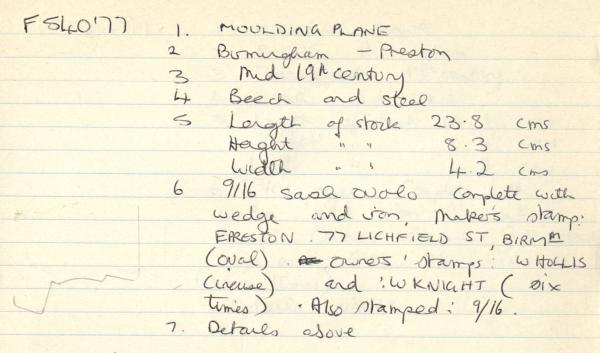 FS40'77 1. MOULDING PLANE
2 Birmingham - Preston
3 Mid 19th century
4 Beech and steel
5 Length of stock 23.8 cms
Height " " 8.3 cms
Width " " 4.2 cms
6 9/16 sash ovolo complete with
wedge and iron, Maker's stamp:
EPRESTON. 77 LICHFIELD ST, BIRMM
(oval) owners' stamps: W HOLLIS
and :W KNIGHT (six
times). Also stamped: 9/16.
7. Details above